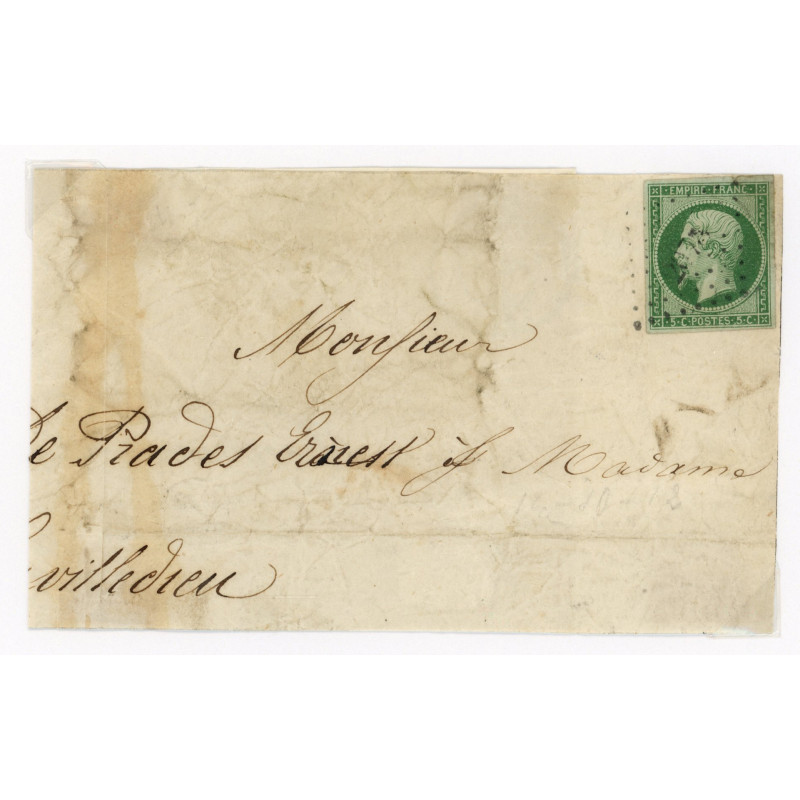 EMPIRE FRANC
5·C·POSTES·5·C
Monsieur
de Prades Ernest Madame
villedieu